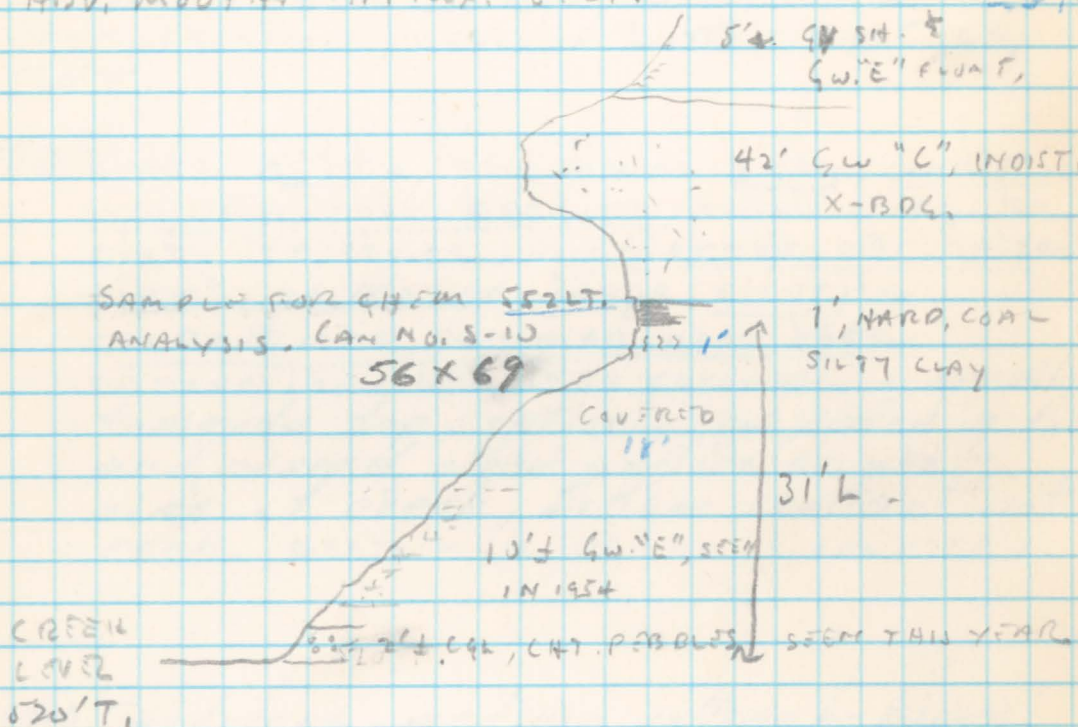 5'± GY SH. &
GW. "E" FLOAT,
42' GW "C", MOIST
X-BDG.
SAMPLE FOR CHEM 552 LT.
ANALYSIS. CAN NO. S-10
56 X 69
1', HARD, COAL
SILTY CLAY
1'
COVERED
18'
31' L
10'± GW. "E", SEEN
IN 1954
CREEK
LEVEL
520' T.
2'± CGL, CHT. PEBBLES SEEN THIS YEAR